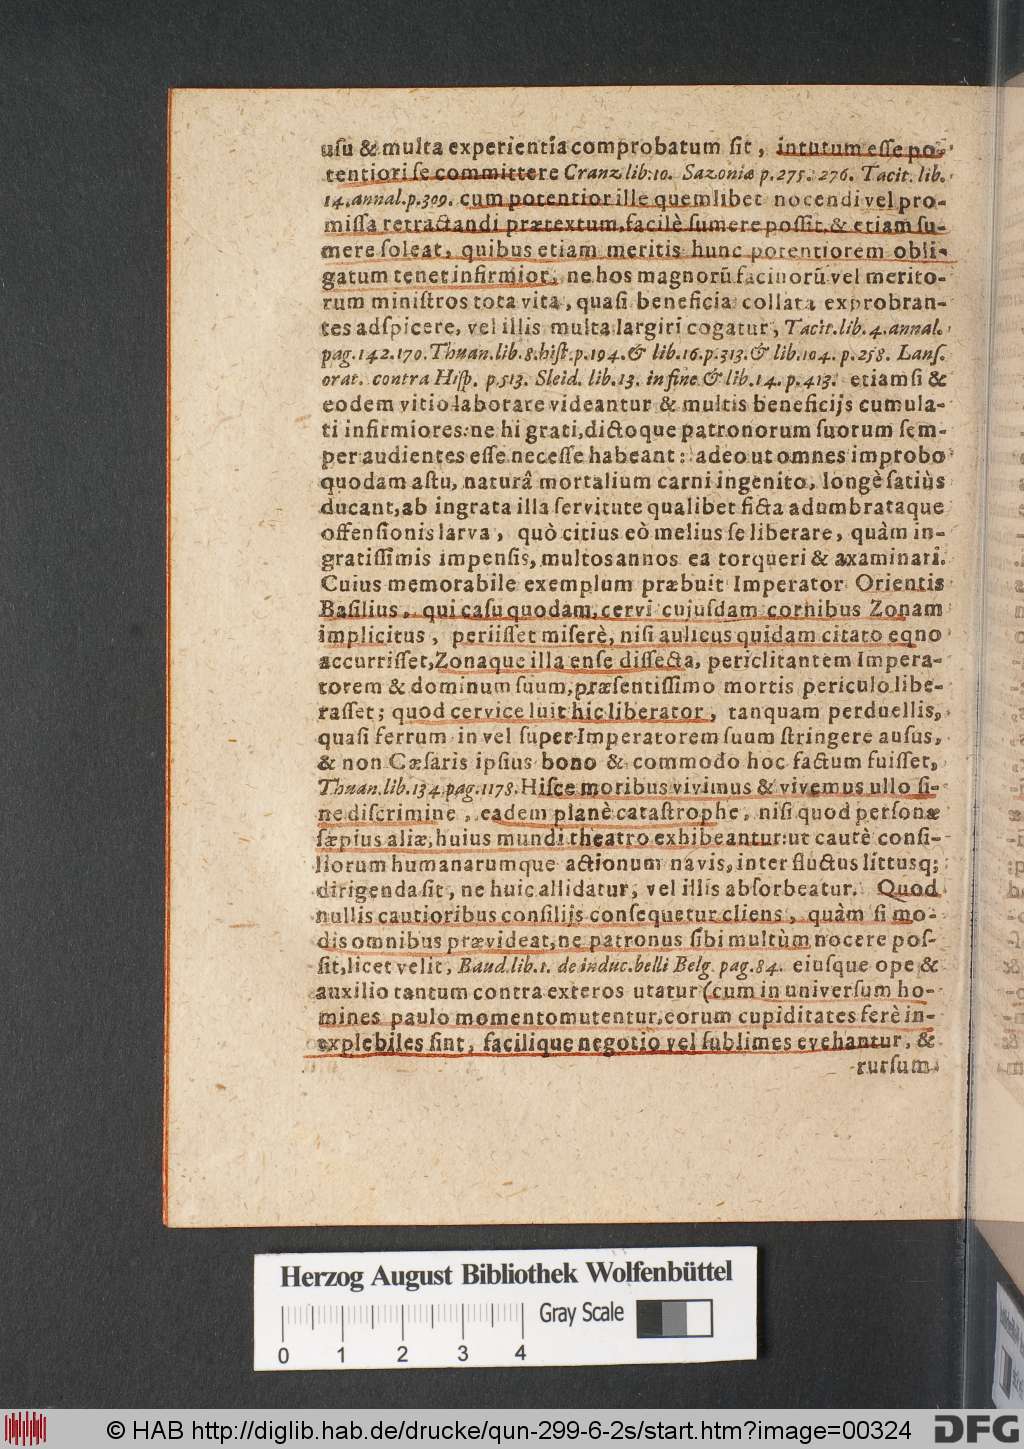 uſu & multa experientia comprobatum ſit, intutum eſſe po-
tentiori ſe committere Cranz. lib. 10. Saxoniæ p. 275. 276. Tacit. lib.
14. annal. p. 309. cum potentior ille quemlibet nocendi vel pro-
miſſa retractandi prætextum, facilè ſumere poſſit, & etiam ſu-
mere ſoleat, quibus etiam meritis hunc potentiorem obli-
gatum tenet infirmior, ne hos magnorũ facinorũ vel merito-
rum miniſtros tota vita, quaſi beneficia collata exprobran-
tes adſpicere, vel illis multa largiri cogatur, Tacit. lib. 4. annal.
pag. 142. 170. Thuan. lib. 8. hiſt. p. 194. & lib. 16. p. 313. & lib. 104. p. 258. Lanſ.
orat. contra Hiſp. p. 513. Sleid. lib. 13. in fine & lib. 14. p. 413. etiamſi &
eodem vitio laborare videantur & multis beneficijs cumula-
ti infirmiores: ne hi grati, dictoque patronorum ſuorum ſem-
per audientes eſſe neceſſe habeant: adeo ut omnes improbo
quodam aſtu, naturâ mortalium carni ingenito, longè ſatiùs
ducant, ab ingrata illa ſervitute qualibet ficta adumbrataque
offenſionis larva, quò citius eò melius ſe liberare, quàm in-
gratiſſimis impenſis, multos annos ea torqueri & axaminari.
Cuius memorabile exemplum præbuit Imperator Orientis
Baſilius, qui caſu quodam, cervi cujuſdam cornibus Zonam
implicitus, periiſſet miſerè, niſi aulicus quidam citato eqno
accurriſſet, Zonaque illa enſe diſſecta, periclitantem Impera-
torem & dominum ſuum, præſentiſſimo mortis periculo libe-
raſſet; quod cervice luit hic liberator, tanquam perduellis,
quaſi ferrum in vel ſuper Imperatorem ſuum ſtringere auſus,
& non Cæſaris ipſius bono & commodo hoc factum fuiſſet,
Thuan. lib. 134. pag. 1178. Hiſce moribus vivimus & vivemus ullo ſi-
ne diſcrimine, eadem planè cataſtrophe, niſi quod perſonæ
ſæpius aliæ, huius mundi theatro exhibeantur: ut cautè conſi-
liorum humanarumque actionum navis, inter fluctus littusq;
dirigenda ſit, ne huic allidatur, vel illis abſorbeatur. Quod
nullis cautioribus conſilijs conſequetur cliens, quàm ſi mo-
dis omnibus prævideat, ne patronus ſibi multùm nocere poſ-
ſit, licet velit, Baud. lib. 1. de induc. belli Belg. pag. 84. eiuſque ope &
auxilio tantum contra exteros utatur (cum in univerſum ho-
mines paulo momento mutentur, eorum cupiditates ferè in-
explebiles ſint, facilique negotio vel ſublimes evehantur, &
rurſum
Herzog August Bibliothek Wolfenbüttel
Gray Scale
0 1 2 3 4
© HAB http://diglib.hab.de/drucke/qun-299-6-2s/start.htm?image=00324
DFG